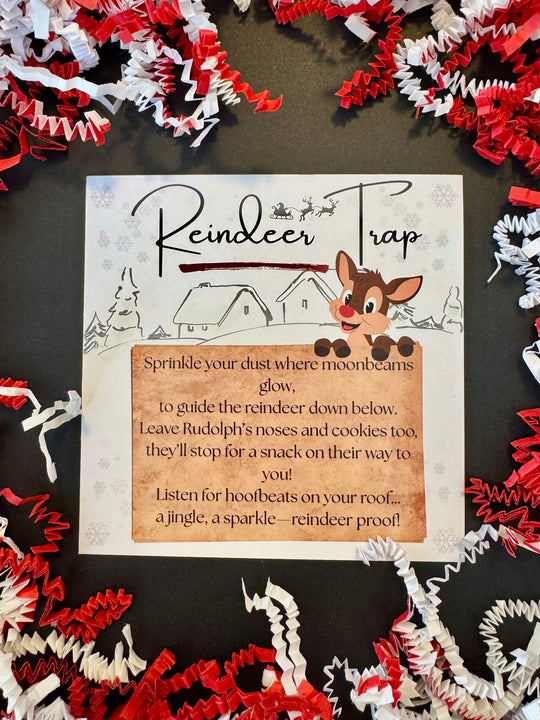 Reindeer Trap
Sprinkle your dust where moonbeams
glow,
to guide the reindeer down below.
Leave Rudolph's noses and cookies too,
they'll stop for a snack on their way to
you!
Listen for hoofbeats on your roof...
a jingle, a sparkle—reindeer proof!